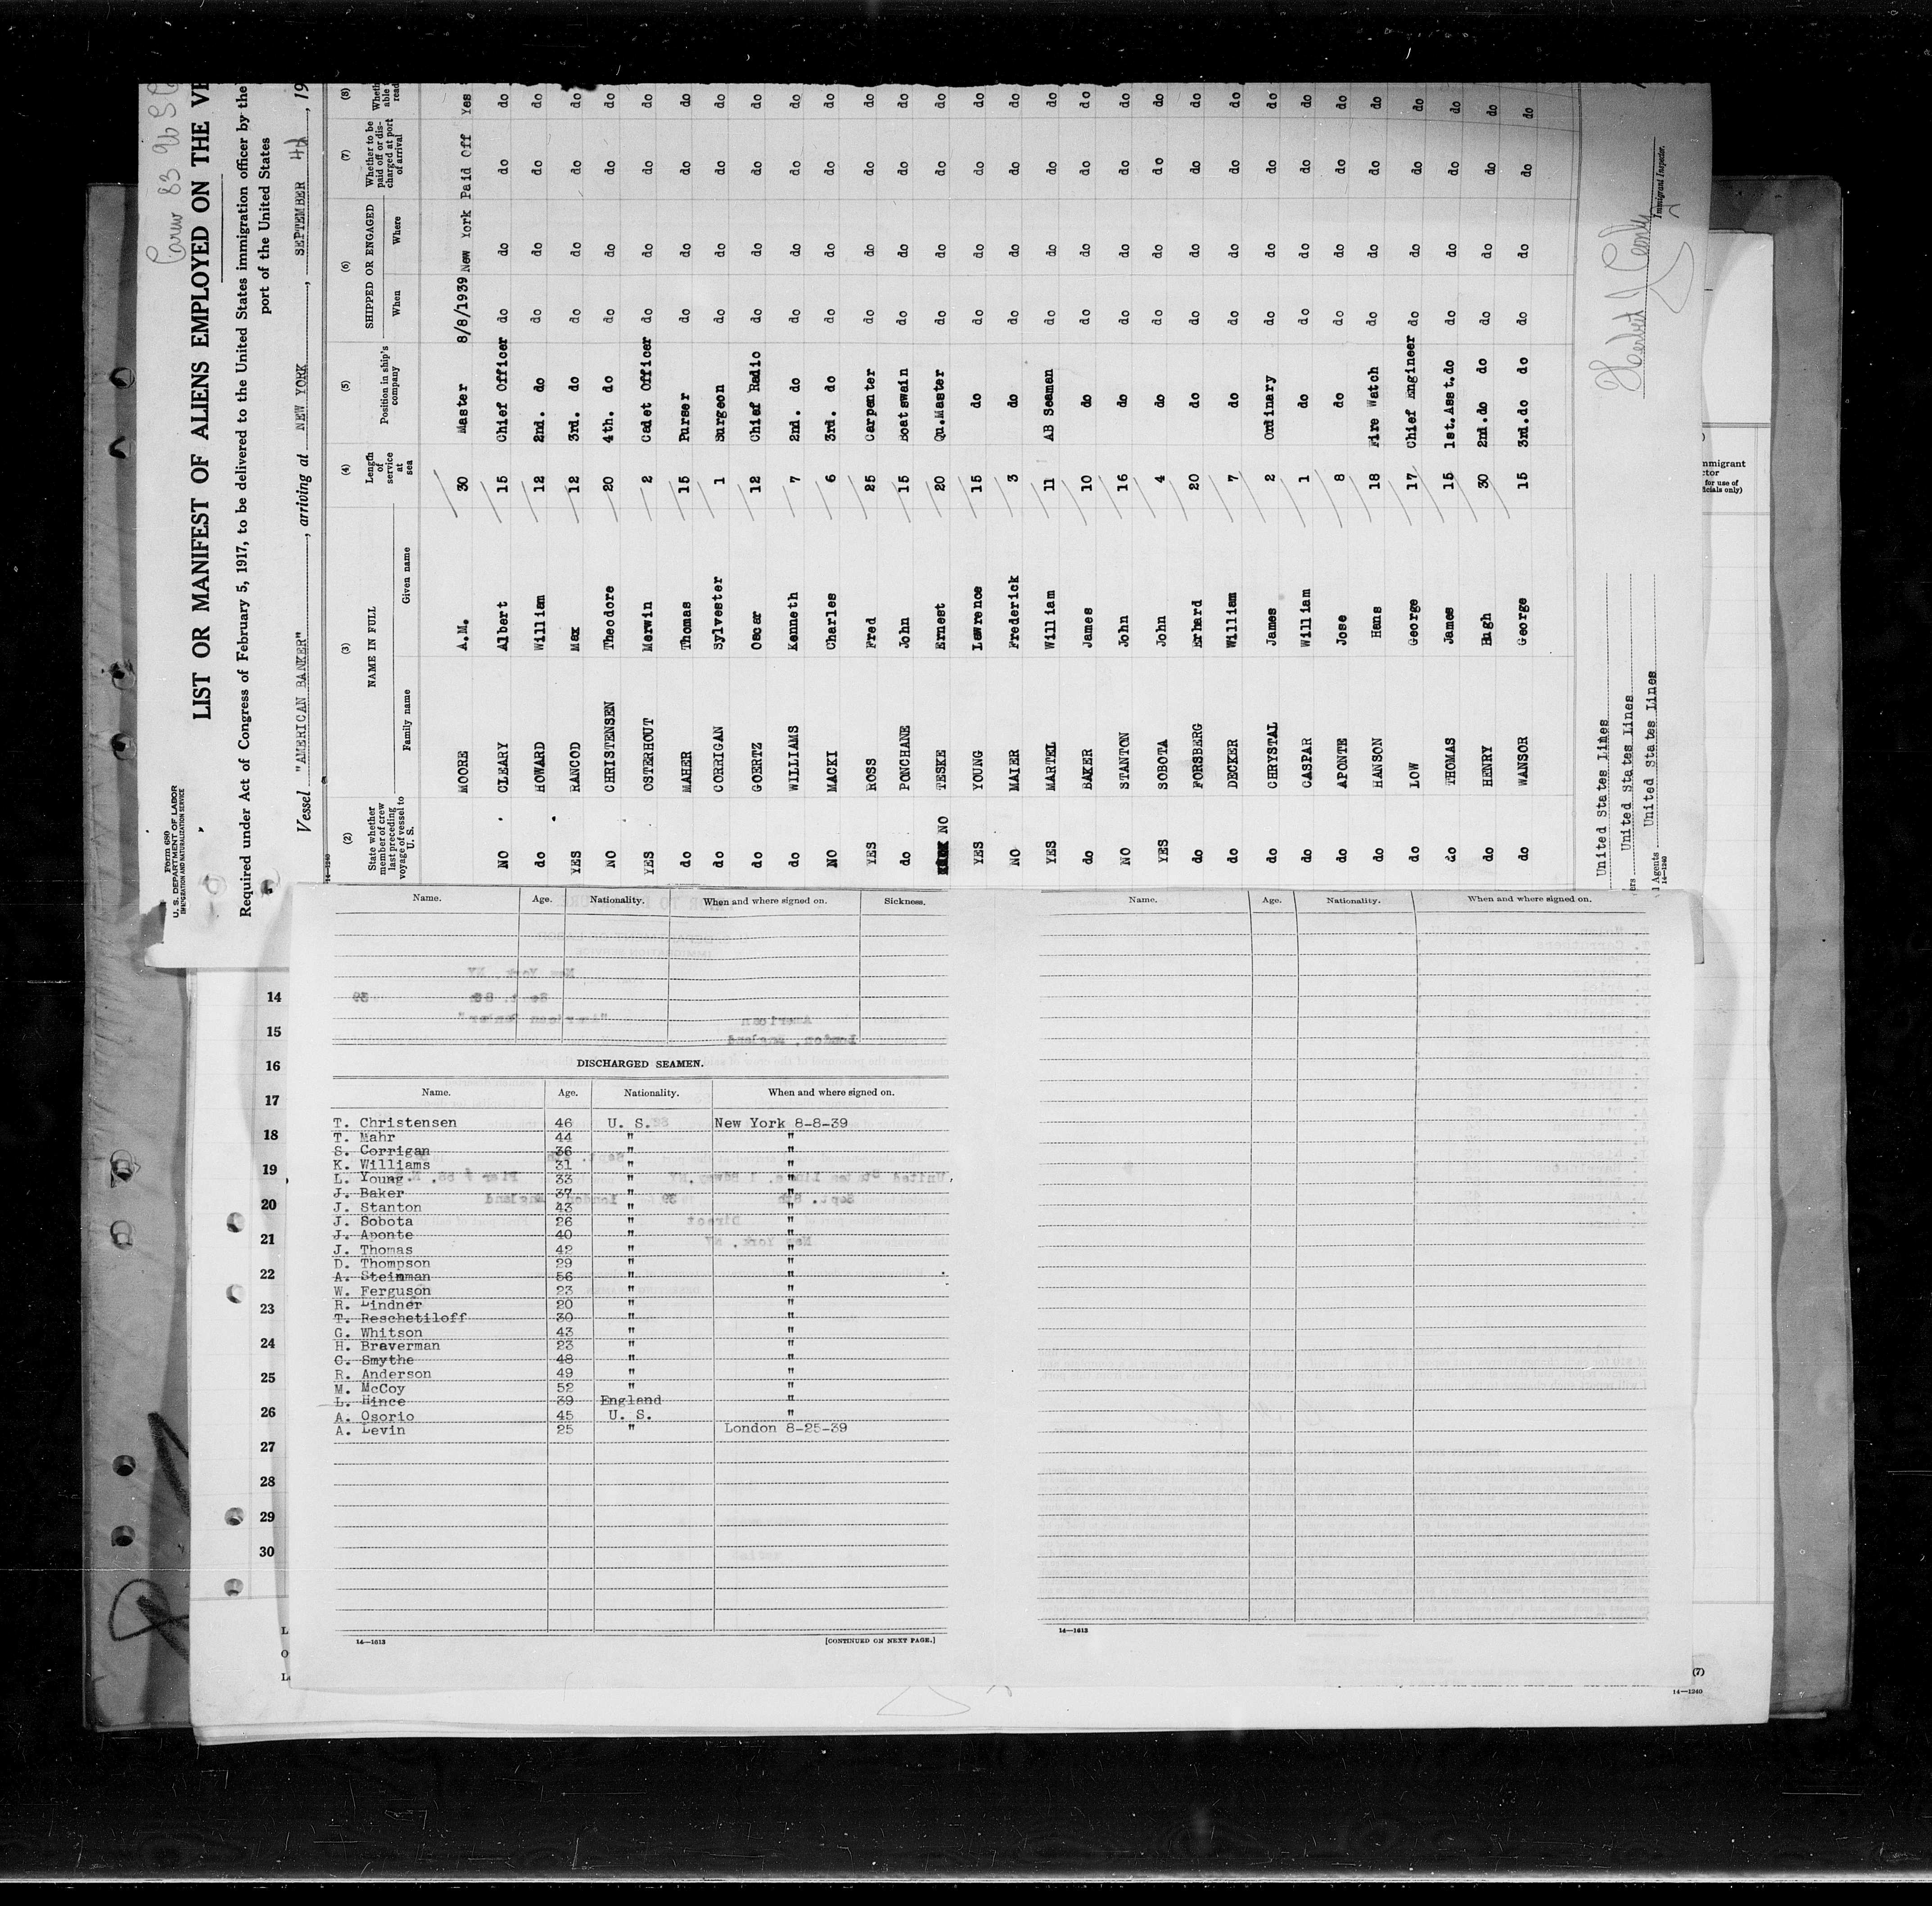 Form 680
U. S. DEPARTMENT OF LABOR
IMMIGRATION AND NATURALIZATION SERVICE
LIST OR MANIFEST OF ALIENS EMPLOYED ON THE VE
Required under Act of Congress of February 5, 1917, to be delivered to the United States immigration officer by the
port of the United States
Vessel "AMERICAN BANKER", arriving at NEW YORK, SEPTEMBER 4th, 19
14-1240
(2) (3) (4) (5) (6) (7) (8)
State whether member of crew last preceding voyage of vessel to U. S.
NAME IN FULL
Family name Given name
Length of service at sea
Position in ship's company
SHIPPED OR ENGAGED
When Where
Whether to be paid off or discharged at port of arrival
MOORE A.M. 30 Master 8/8/1939 New York Paid Off Yes
NO CLEARY Albert 15 Chief Officer do do do do
do HOWARD William 12 2nd. do do do do do
YES RANCOD Max 12 3rd. do do do do do
NO CHRISTENSEN Theodore 20 4th. do do do do do
YES OSTERHOUT Merwin 2 Cadet Officer do do do do
do MAHER Thomas 15 Purser do do do do
do CORRIGAN Sylvester 1 Surgeon do do do do
do GOERTZ Oscar 12 Chief Radio do do do do
do WILLIAMS Kenneth 7 2nd. do do do do do
NO MACKI Charles 6 3rd. do do do do do
YES ROSS Fred 25 Carpenter do do do do
do PONCHANE John 15 Boatswain do do do do
NO TESKE Ernest 20 Qu.Master do do do do
YES YOUNG Lawrence 15 do do do do do
NO MAIER Frederick 3 do do do do do
YES MARTEL William 11 AB Seaman do do do do
do BAKER James 10 do do do do do
NO STANTON John 16 do do do do do
YES SOBOTA John 4 do do do do do
do FORSBERG Erhard 20 do do do do do
do DECKER William 7 do do do do do
do CHRYSTAL James 2 Ordinary do do do do
do CASPAR William 1 do do do do do
do APONTE Jose 8 do do do do do
do HANSON Hans 18 Fire Watch do do do do
do LOW George 17 Chief Engineer do do do do
do THOMAS James 15 1st.Asst.do do do do do
do HENRY Hugh 30 2nd.do do do do do do
do WANSOR George 15 3rd.do do do do do do
United States Lines
United States Lines
United States Lines
Agents
14-1240
Immigrant Inspector.
Name. Age. Nationality. When and where signed on. Sickness.
Name. Age. Nationality. When and where signed on.
DISCHARGED SEAMEN.
Name. Age. Nationality. When and where signed on.
T. Christensen 46 U. S. New York 8-8-39
T. Mahr 44 " "
S. Corrigan 36 " "
K. Williams 31 " "
L. Young 33 " "
J. Baker 37 " "
J. Stanton 43 " "
J. Sobota 26 " "
J. Aponte 40 " "
J. Thomas 42 " "
D. Thompson 29 " "
A. Steinman 56 " "
W. Ferguson 23 " "
R. Lindner 20 " "
T. Reschetiloff 30 " "
G. Whitson 43 " "
H. Braverman 23 " "
C. Smythe 48 " "
R. Anderson 49 " "
M. McCoy 52 " "
L. Hince 39 England "
A. Osorio 45 U. S. "
A. Levin 25 " London 8-25-39
14—1613
[CONTINUED ON NEXT PAGE.]
14—1613
14
15
16
17
18
19
20
21
22
23
24
25
26
27
28
29
30
(7)
14—1240